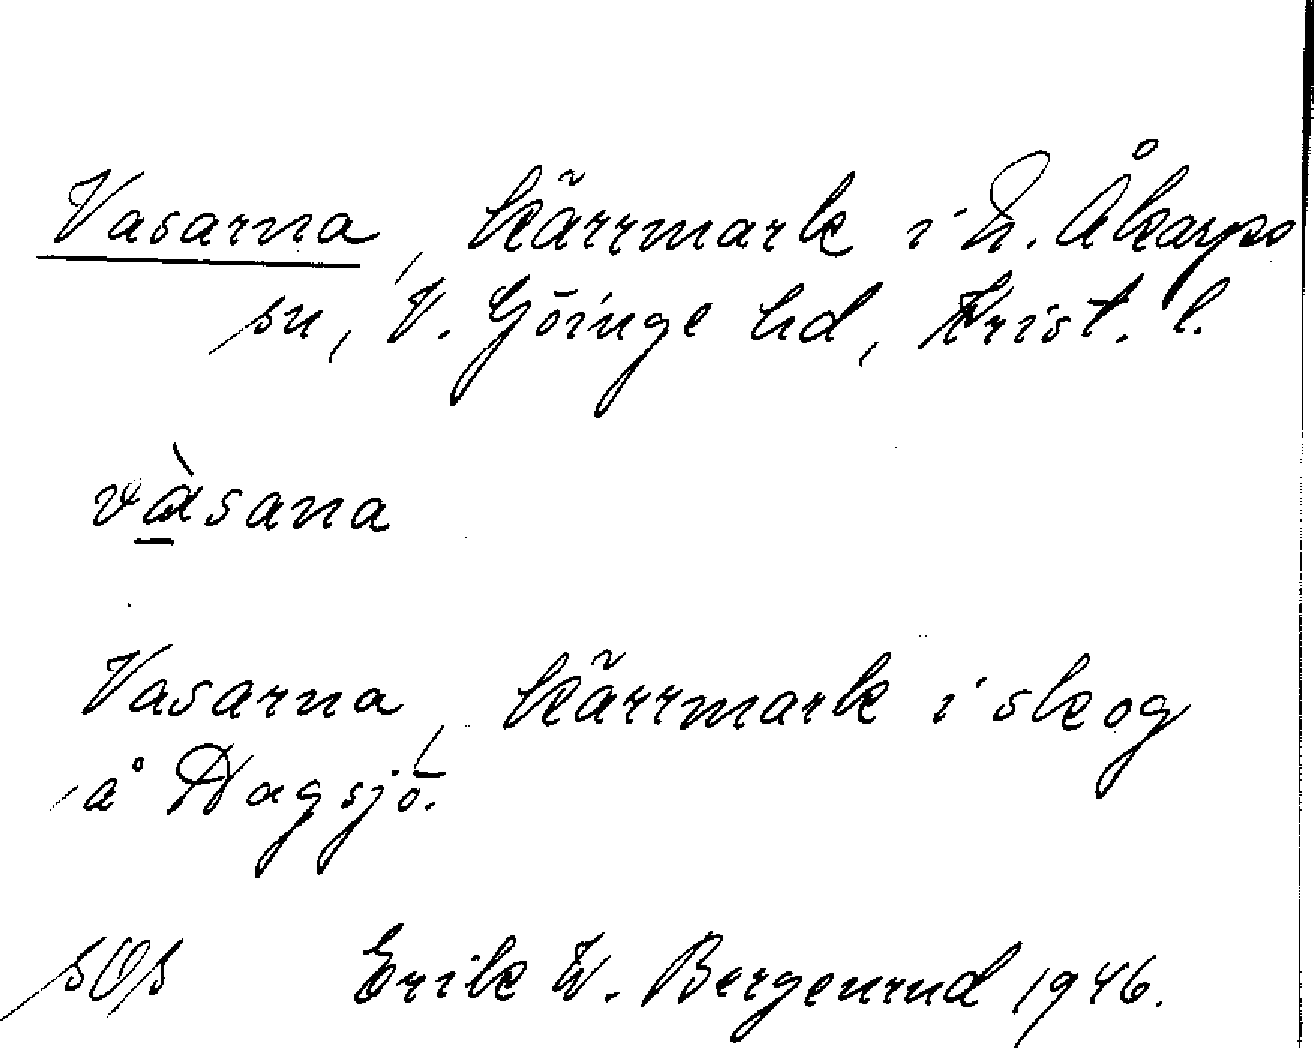 Vasarna, kärrmark i N. Åkarps
sn, V. Göinge hd, Krist. l.
vàsana
Vasarna, kärrmark i skog
å Hagsjö.
Erik W. Bergenrud 1946.